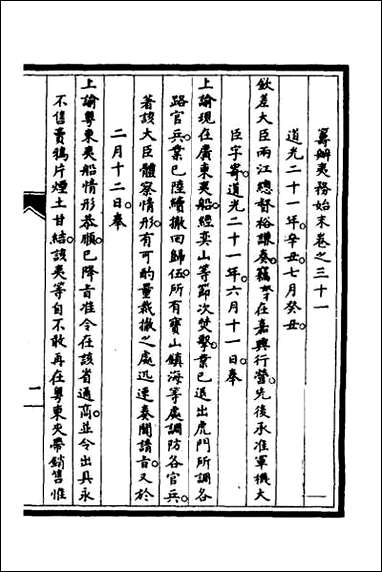 籌辦夷務始末卷之三十一
道光二十一年。辛丑。七月癸丑。
欽差大臣兩江總督裕謙奏。竊奴才在嘉興行營。先後承准軍機大
臣字寄。道光二十一年六月十一日。奉
上諭現在廣東夷船。經奕山等節次焚擊。業已退出虎門。所調各
路官兵。業已陸續撤回歸伍。所有寶山鎮海等處調防各官兵。
著該大臣體察情形。有可酌量裁撤之處迅速奏聞請旨。又於
二月十二日。奉
上諭粵東夷船情形恭順。已降旨准令在該省通商。並令出具永
不售賣鴉片煙土甘結該夷等自不敢再在粵東夾帶銷售惟
一